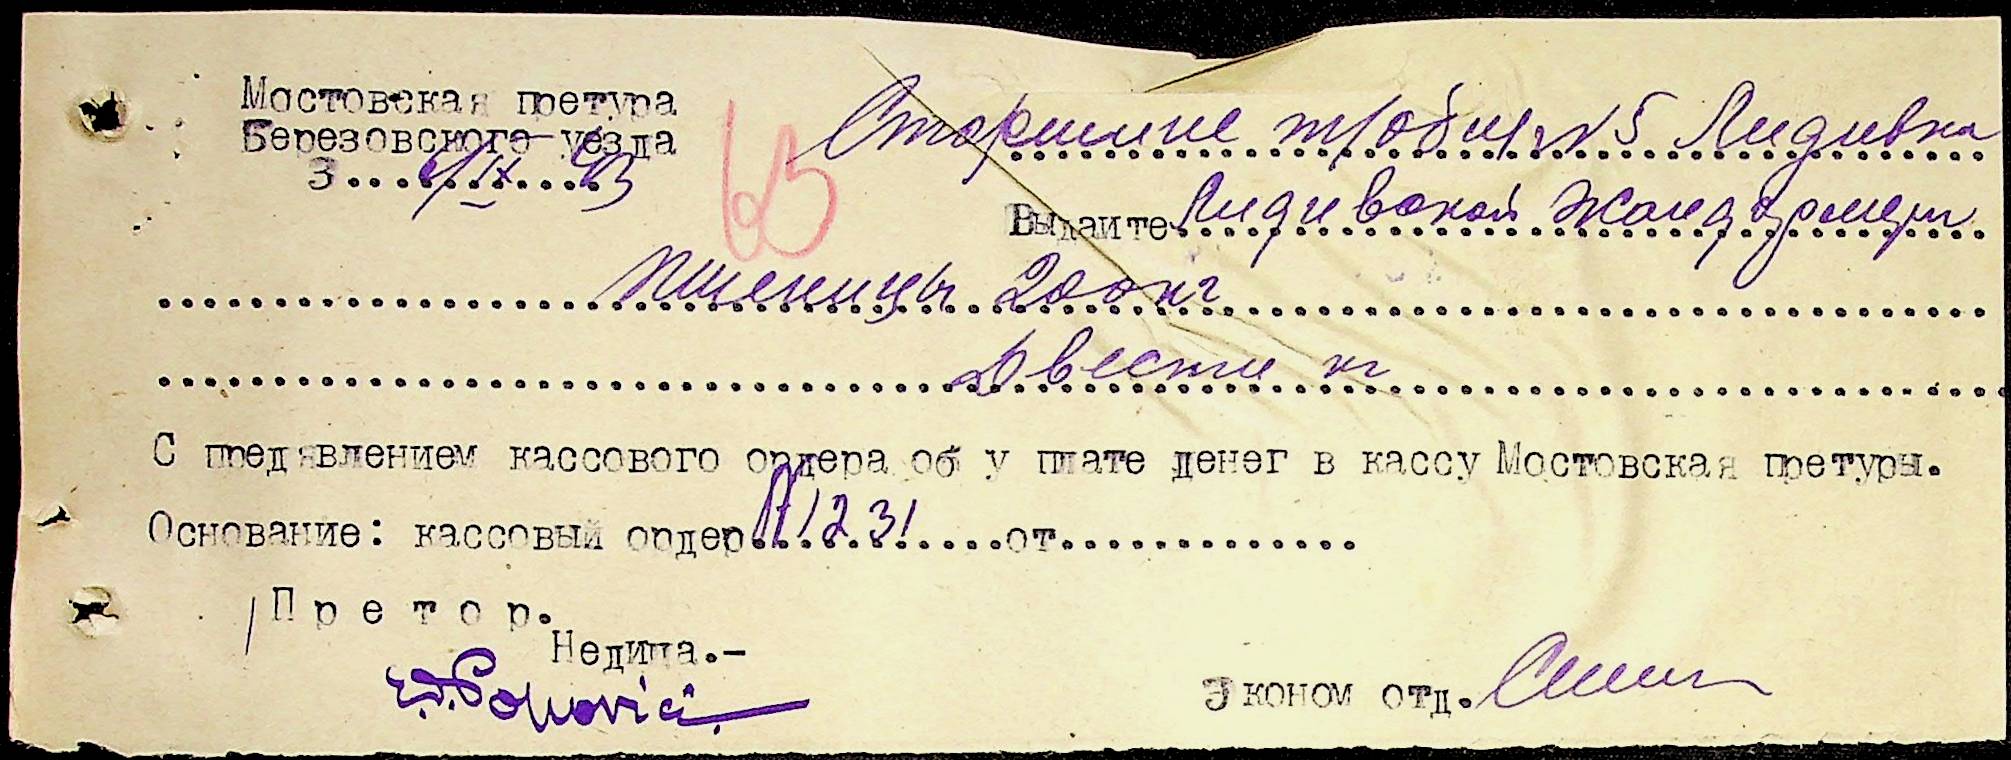 Мостовская претура
Березовского уезда
З.... 6/IX 43
65
Старшине т/общ. N 5 Лидивка
Выдайте Лидивской жандармерии
Пшеницы 200 кг
Двести кг
С предявлением кассового ордера об у плате денег в кассу Мостовская претуры.
Основание: кассовый ордер № 1231 ..... от..............
Претор.
Недица.-
Popovici
Эконом отд.